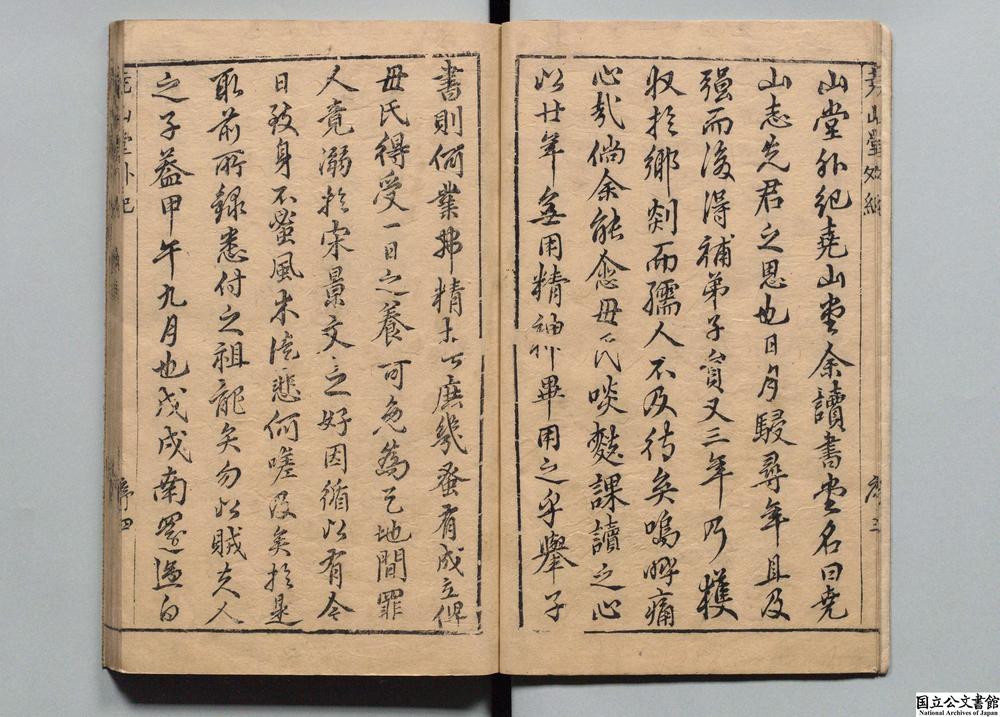 山堂外紀堯山堂余讀書堂名曰堯
山志先君之思也日月駸尋年且及
强而後得補弟子員又三年乃獲
收於鄉剡而孺人不及待矣嗚呼痛
心哉倘余能愈母氏啖麨課讀之心
以廿年無用精神畢用之乎舉子
書則何業弗精亦庶幾蚤有成立俾
母氏得受一日之養可免爲天地間罪
人竟溺於宋景文之好因循以有今
日致身不蚤風木境悲何嗟及矣於是
取前所錄悉付之祖龍矣勿以賊夫人
之子蓋甲午九月也戊戌南還過白
堯山堂外紀
序三
堯山堂外紀
序四
国立公文書館
National Archives of Japan